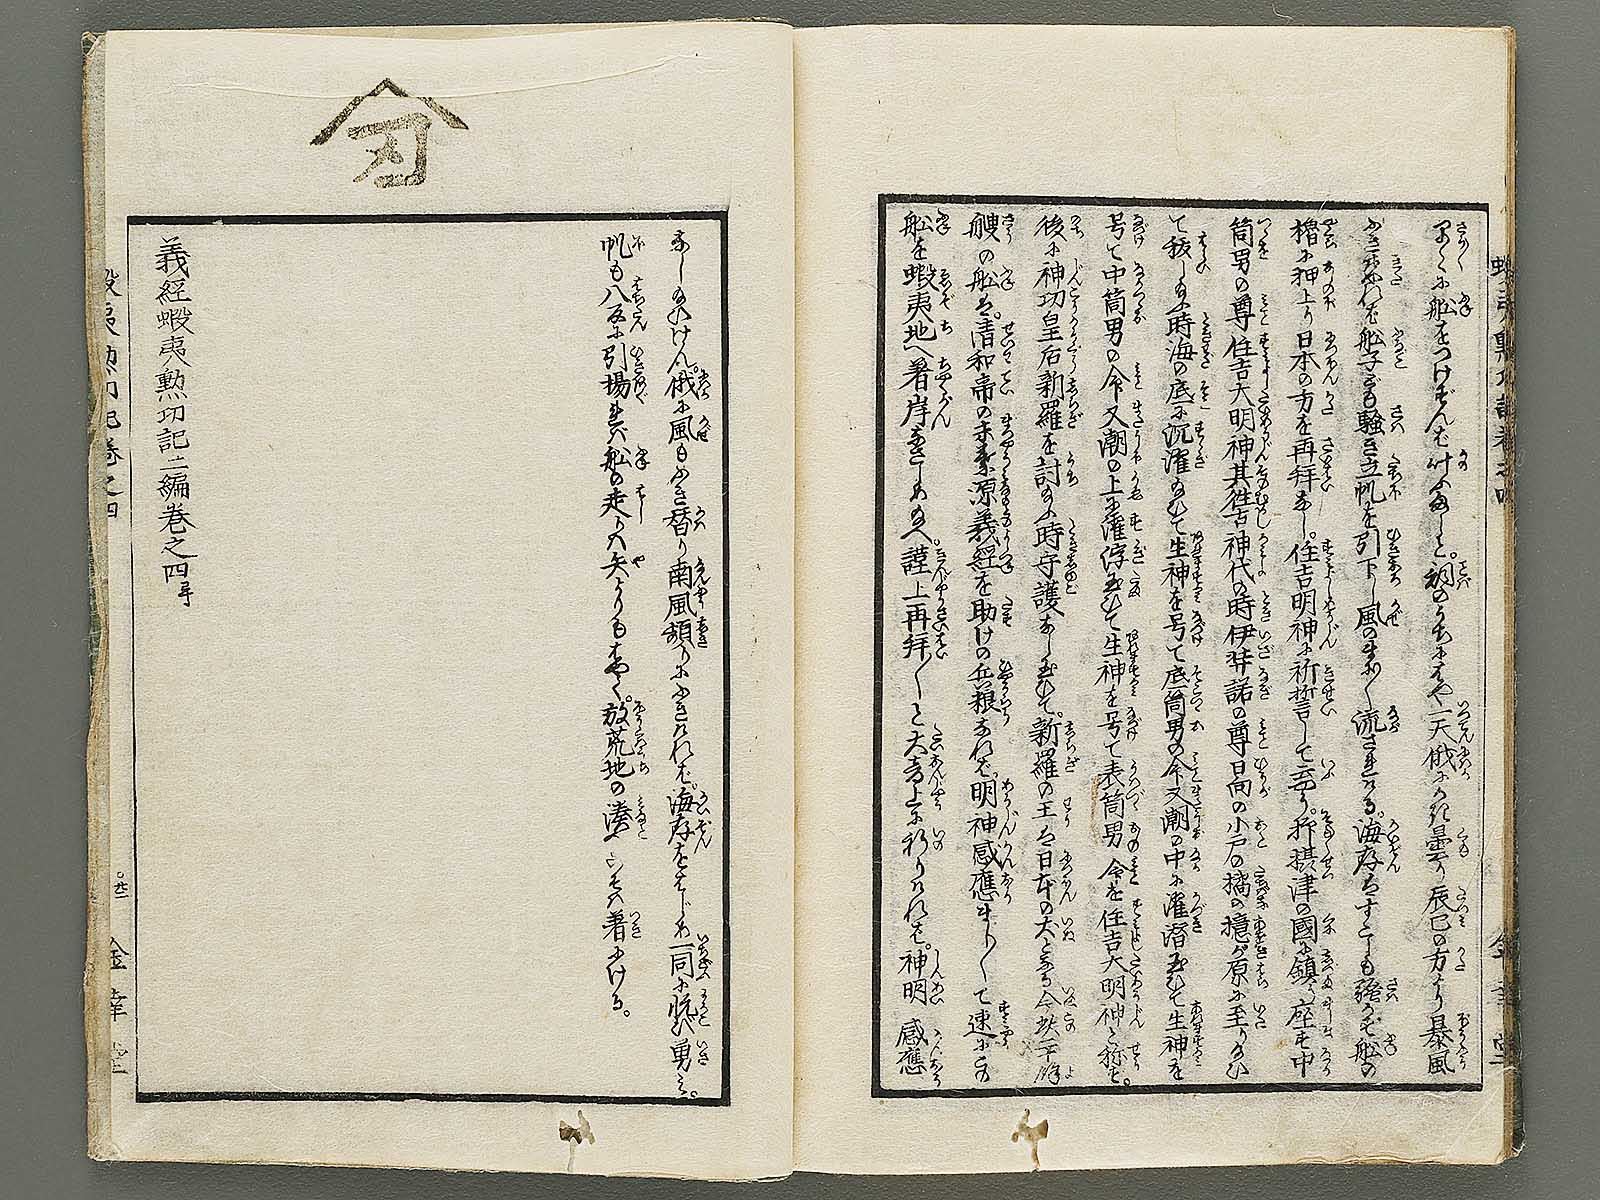 早くに船をつけずんば叶ふまじと。詞のうちにはや一天俄にかき曇り辰巳の方より暴風
ふき出れば船子ども騒ぎ立帆を引下し風のまにく流されける。海存はすこしも騒がず船の
櫓に押上り日本の方を再拝なし。住吉明神に祈誓して云やう。抑摂津の國に鎮座す中
筒男の尊住吉大明神其往古神代の時伊弉諾の尊日向の小戸の橘の檍が原に至り給ひ
て祓し給ふ時海の底に沉濯給ひて生神を号て底筒男の命又潮の中に濯潜玉ひて生神を
号て中筒男の命又潮の上に濯浮玉ひて生神を号て表筒男命を住吉大明神と称す。
後に神功皇后新羅を討給ふ時守護なし玉ひて。新羅の王を日本の犬となる今此二千餘
艘の船は。清和帝の末葉源義經を助けの兵粮なれば。明神感應ましくて速にこの
船を蝦夷地へ著岸なさしめ給へ。謹上再拝くと大音上に祈りければ。神明感應
なし給ひけん。俄に風もふき替り南風頻りにふきければ。海存をはじめ一同に悦び勇み。
帆も八分に引揚れば船の走る事矢よりもはやく。放荒地の湊へこそは著にける。
義經蝦夷勲功記二編巻之四 終
蝦夷勲功記巻之四
廿二
金幸堂